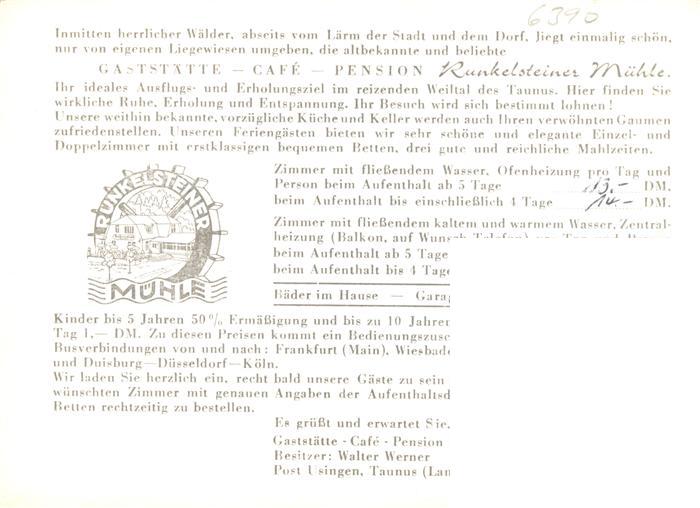 6390
Inmitten herrlicher Wälder, abseits vom Lärm der Stadt und dem Dorf, liegt einmalig schön,
nur von eigenen Liegewiesen umgeben, die altbekannte und beliebte
GASTSTÄTTE — CAFÉ — PENSION Runkelsteiner Mühle.
Ihr ideales Ausflugs- und Erholungsziel im reizenden Weiltal des Taunus. Hier finden Sie
wirkliche Ruhe, Erholung und Entspannung. Ihr Besuch wird sich bestimmt lohnen!
Unsere weithin bekannte, vorzügliche Küche und Keller werden auch Ihren verwöhnten Gaumen
zufriedenstellen. Unseren Feriengästen bieten wir sehr schöne und elegante Einzel- und
Doppelzimmer mit erstklassigen bequemen Betten, drei gute und reichliche Mahlzeiten.
RUNKELSTEINER
MÜHLE
Zimmer mit fließendem Wasser, Ofenheizung pro Tag und
Person beim Aufenthalt ab 5 Tage 13.- DM.
beim Aufenthalt bis einschließlich 4 Tage 14.- DM.
Zimmer mit fließendem kaltem und warmem Wasser, Zentral-
heizung (Balkon, auf Wunsch Telefon)
beim Aufenthalt ab 5 Tage
beim Aufenthalt bis 4 Tage
Bäder im Hause — Garag
Kinder bis 5 Jahren 50% Ermäßigung und bis zu 10 Jahren
Tag 1,— DM. Zu diesen Preisen kommt ein Bedienungszusc
Busverbindungen von und nach: Frankfurt (Main), Wiesbade
und Duisburg—Düsseldorf—Köln.
Wir laden Sie herzlich ein, recht bald unsere Gäste zu sein
wünschten Zimmer mit genauen Angaben der Aufenthaltsd
Betten rechtzeitig zu bestellen.
Es grüßt und erwartet Sie
Gaststätte - Café - Pension
Besitzer: Walter Werner
Post Usingen, Taunus (Lan